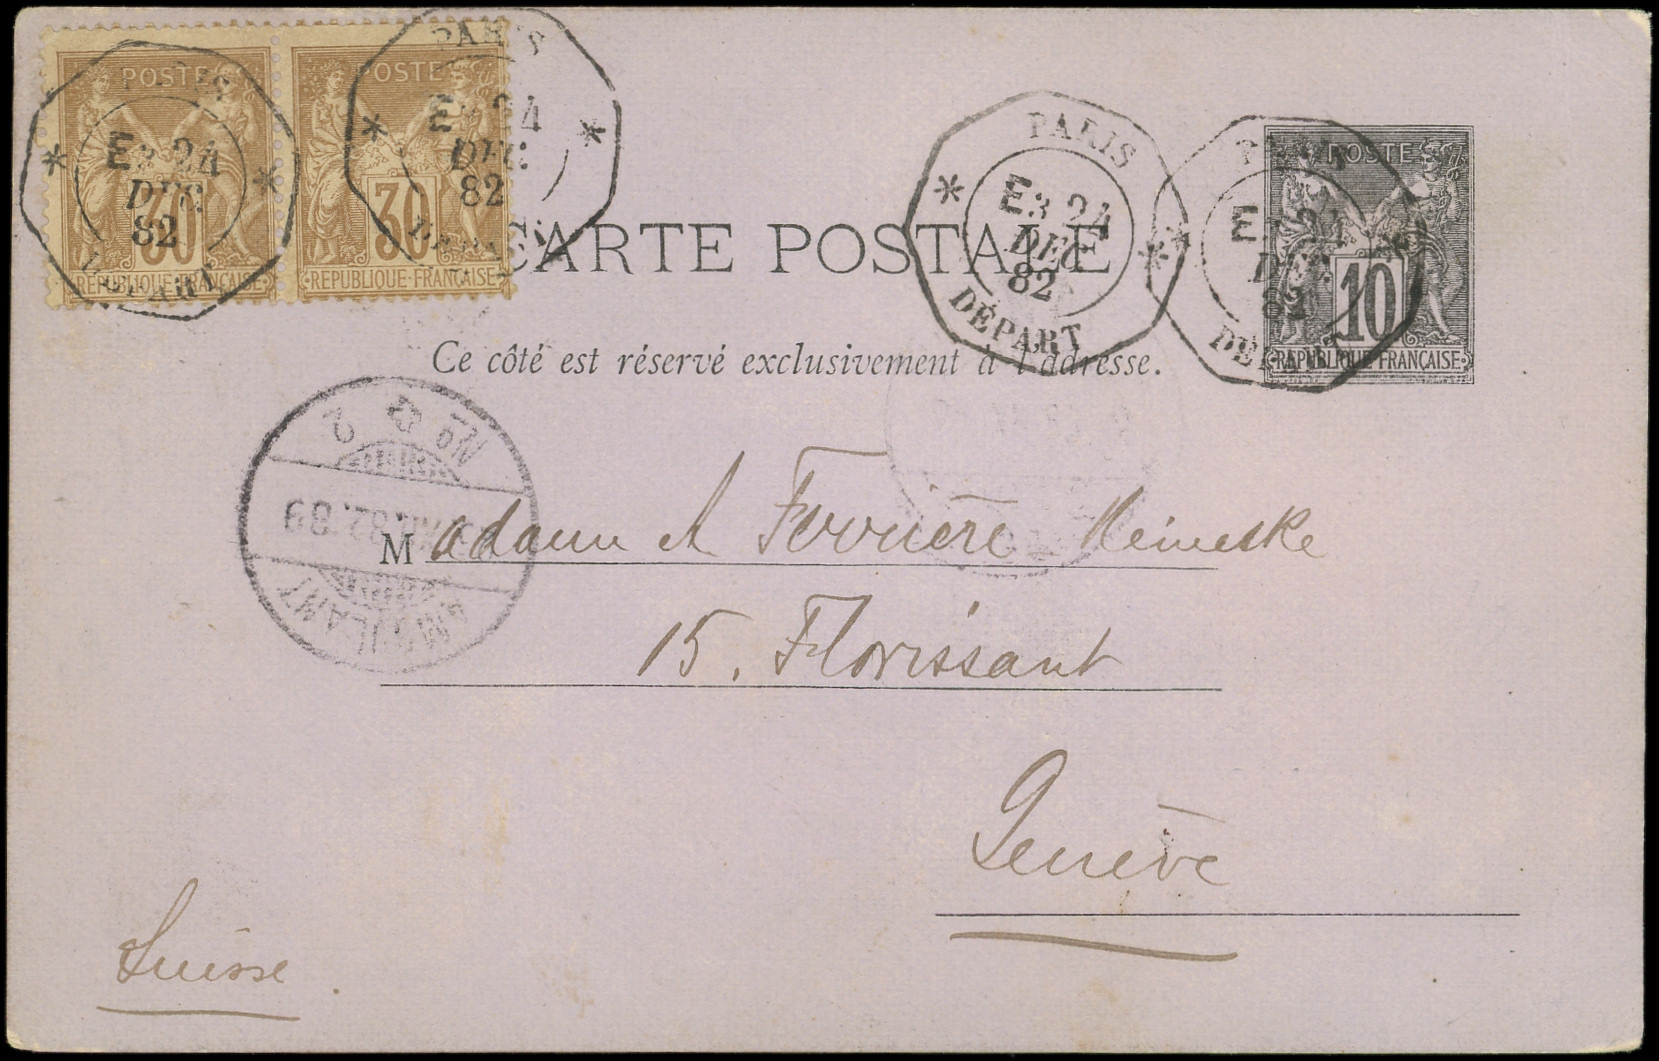 POSTES
E3 24
DEC
82
DÉPART
30
REPUBLIQUE-FRANÇAISE
PARIS
POSTE
E 24
DEC
82
DÉPART
30
REPUBLIQUE-FRANÇAISE
PARIS
E3 24
DEC
82
DÉPART
PARIS
POSTES
E 24
DEC
82
DÉPART
10
REPUBLIQUE FRANÇAISE
CARTE POSTALE
Ce côté est réservé exclusivement à l'adresse.
Madame A Ferrière Heineske
15. Florissant
Genève
Suisse